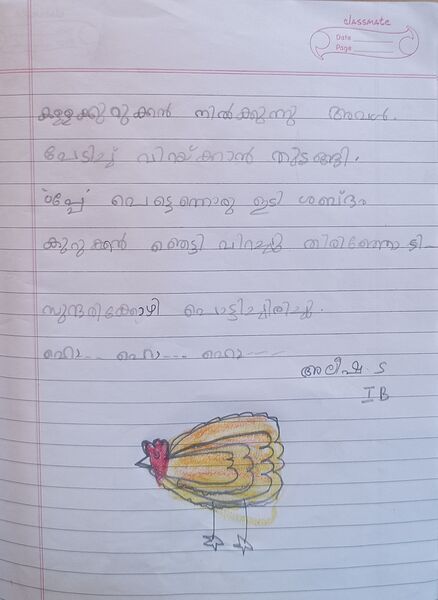 classmate
Date
Page
കള്ളക്കുറുക്കൻ നിൽക്കുന്നു അവൾ.
പേടിച്ച് വിറയ്ക്കാൻ തുടങ്ങി.
പെട്ടെന്നൊരു ഇടി ശബ്ദം
കുറുക്കൻ ഞെട്ടി വിറച്ചു തിരിഞ്ഞോടി
സുന്ദരിക്കോഴി പൊട്ടിച്ചിരിച്ചു.
ഹൊ... ഹൊ... ഹൊ...
അലീഷ ട
I B